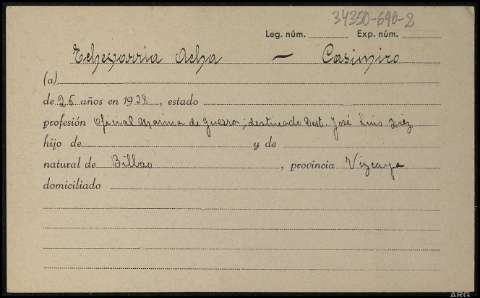 34350-690-2
Leg. núm. Exp. núm.
Echevarria Acha — Casimiro
(a)
de 25 años en 1938, estado
profesión Oficial Marina de Guerra; destructor José Luis Diez
hijo de y de
natural de Bilbao, provincia Vizcaya
domiciliado